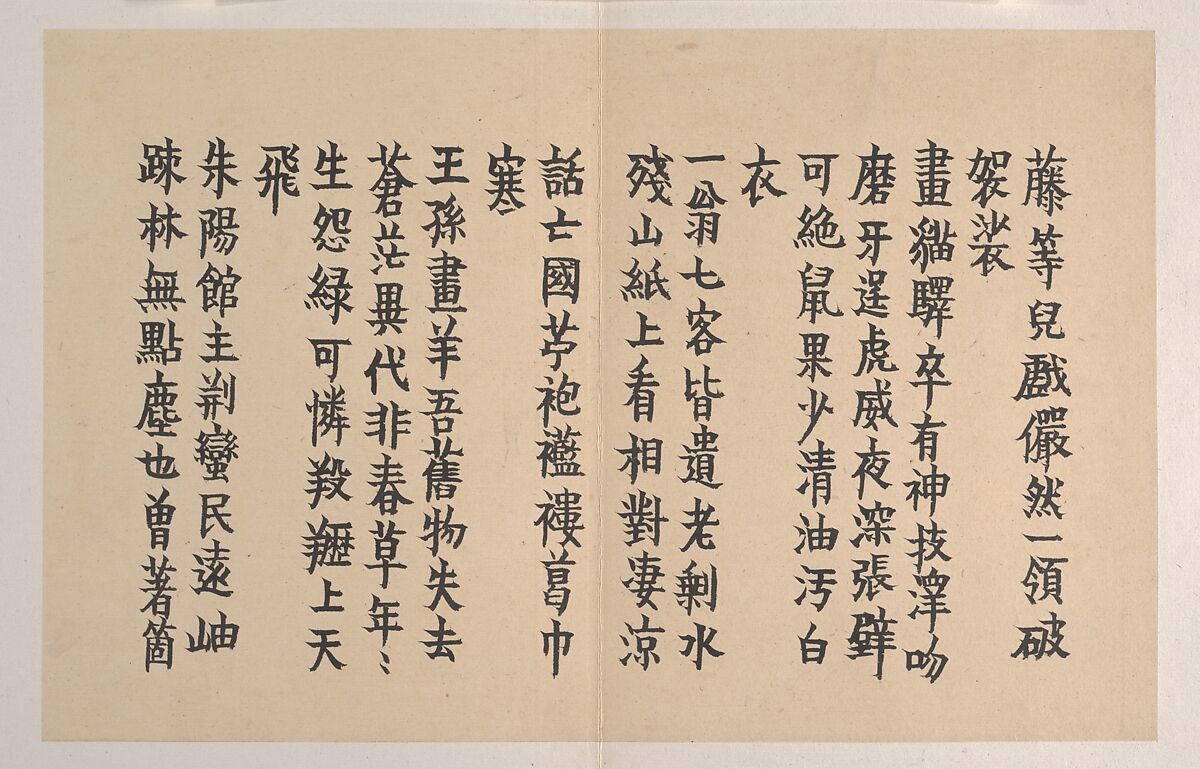 藤等兒戲儼然一領破
袈裟
畫貓驛卒有神技澤吻
磨牙逞虎威夜深張壁
可絶鼠果少清油汚白
衣
一翁七客皆遺老剩水
殘山紙上看相對凄涼
話亡國苧袍襤褸葛巾
寒
王孫畫羊吾舊物失去
蒼茫異代非春草年〻
生怨緑可憐羖䍽上天
飛
朱陽館主荆蠻民遠岫
疎林無點塵也曾著箇